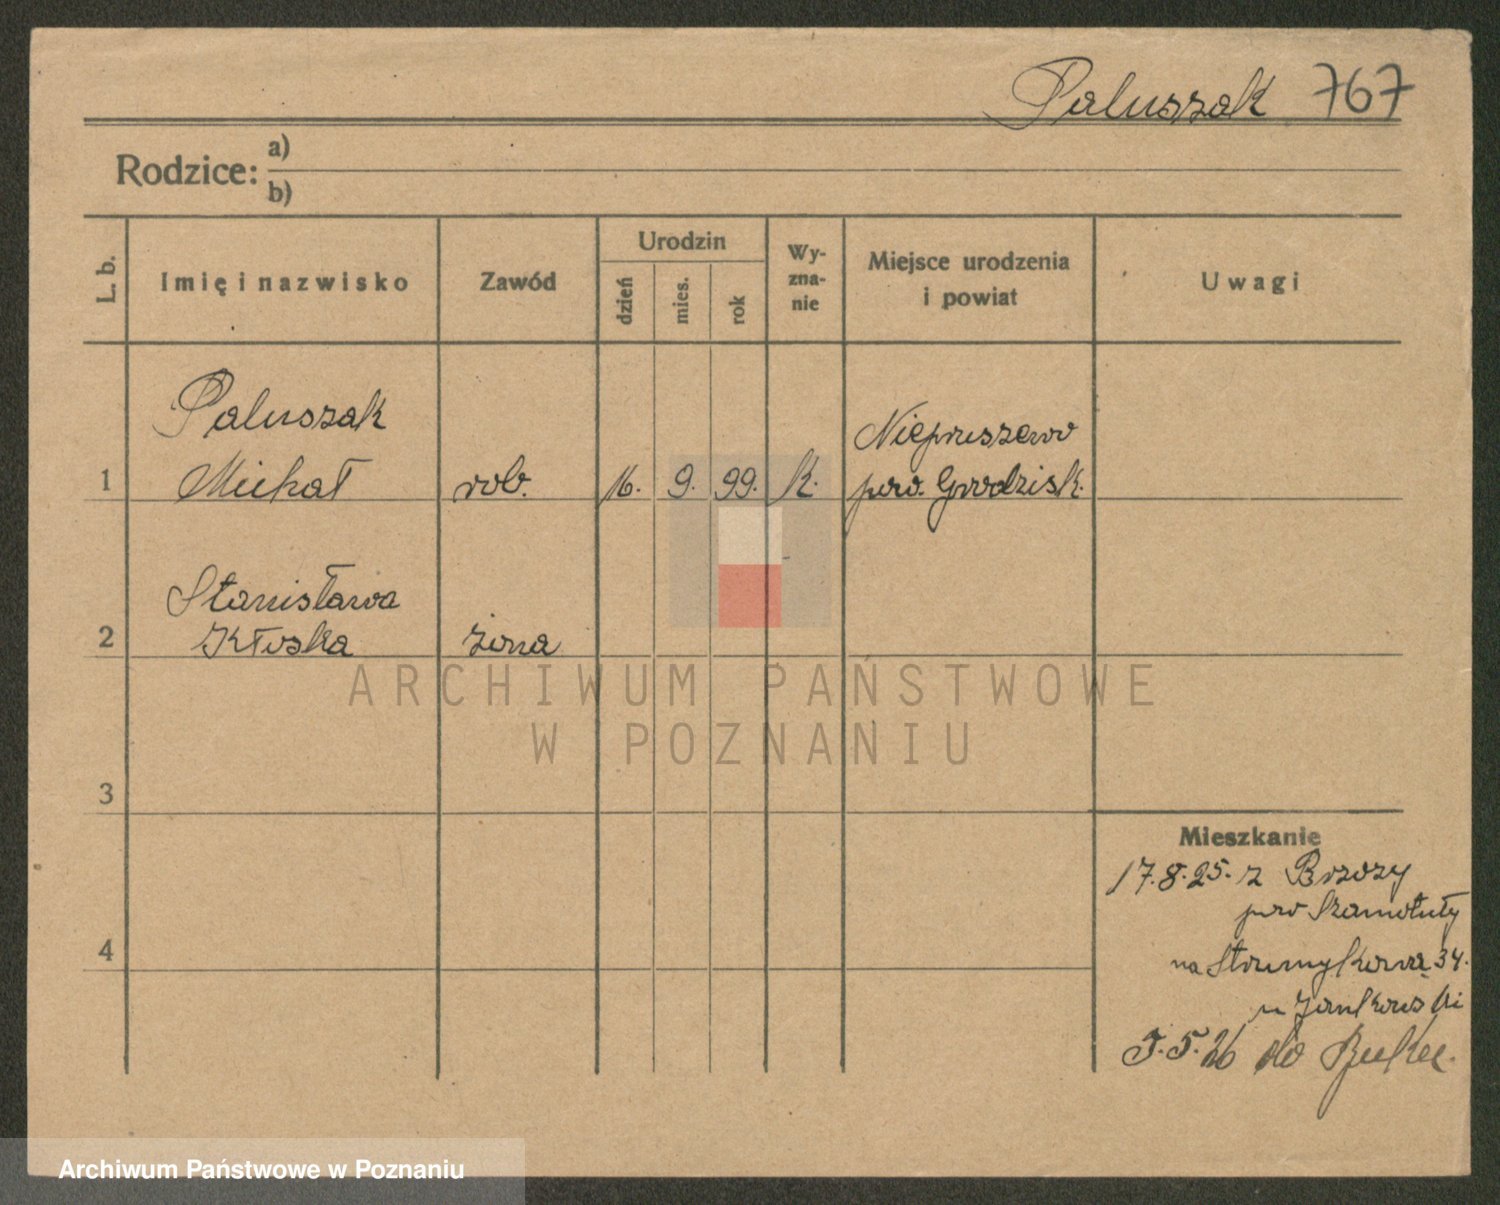 Paluszak 767
Rodzice: a)
b)
L. b.
Imię i nazwisko
Zawód
Urodzin
dzień
mies.
rok
Wy-
zna-
nie
Miejsce urodzenia
i powiat
Uwagi
Paluszak
Niepruszewo
1 Michał rob. 16. 9. 99. K. pow. Grodzisk.
Stanisława
2 Kłoska żona
3
4
Mieszkanie
17.8.25. z Brzozy
pow Szamotuły
na Strumykową 34.
u Jankowski
5.26 do Buku.
ARCHIWUM PAŃSTWOWE
W POZNANIU
Archiwum Państwowe w Poznaniu